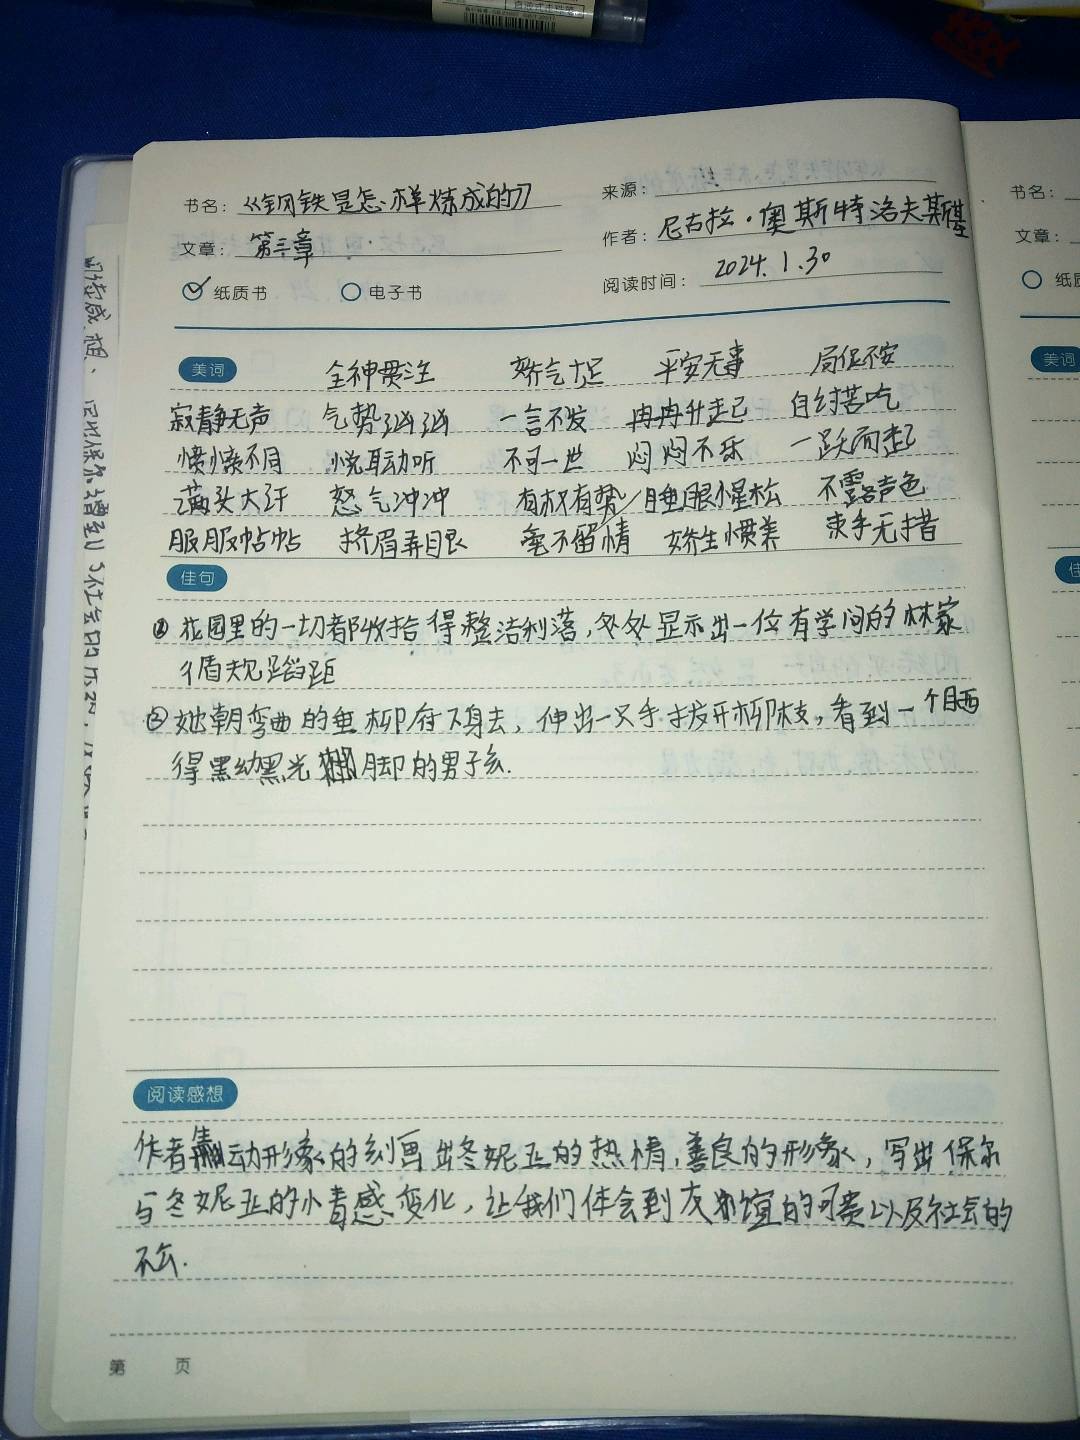 书名：《钢铁是怎样炼成的》
来源：
文章：第三章
作者：尼古拉·奥斯特洛夫斯基
纸质书 电子书
阅读时间：2024.1.30
美词 全神贯注 娇气十足 平安无事 局促不安
寂静无声 气势汹汹 一言不发 冉冉升起 自讨苦吃
愤愤不 悦耳动听 不可一世 闷闷不乐 一跃而起
满头大汗 怒气冲冲 有权有势 睡眼惺松 不露声色
服服帖帖 挤眉弄眼 毫不留情 娇生惯养 束手无措
佳句
花园里的一切都收拾得整洁利落，处处显示出一位有学问的林家
循规蹈距
她朝弯曲的垂柳府下身去，伸出一只手拔开柳枝，看到一个晒
得黑幼黑光 脚的男子孩.
阅读感想
作者 动形象的刻画出冬妮亚的热情，善良的形象，写出保尔
与冬妮亚的小青感变化，让我们体会到友谊的可贵以及社会的
不公.
第 页
书名：
文章：
纸质
美词
佳